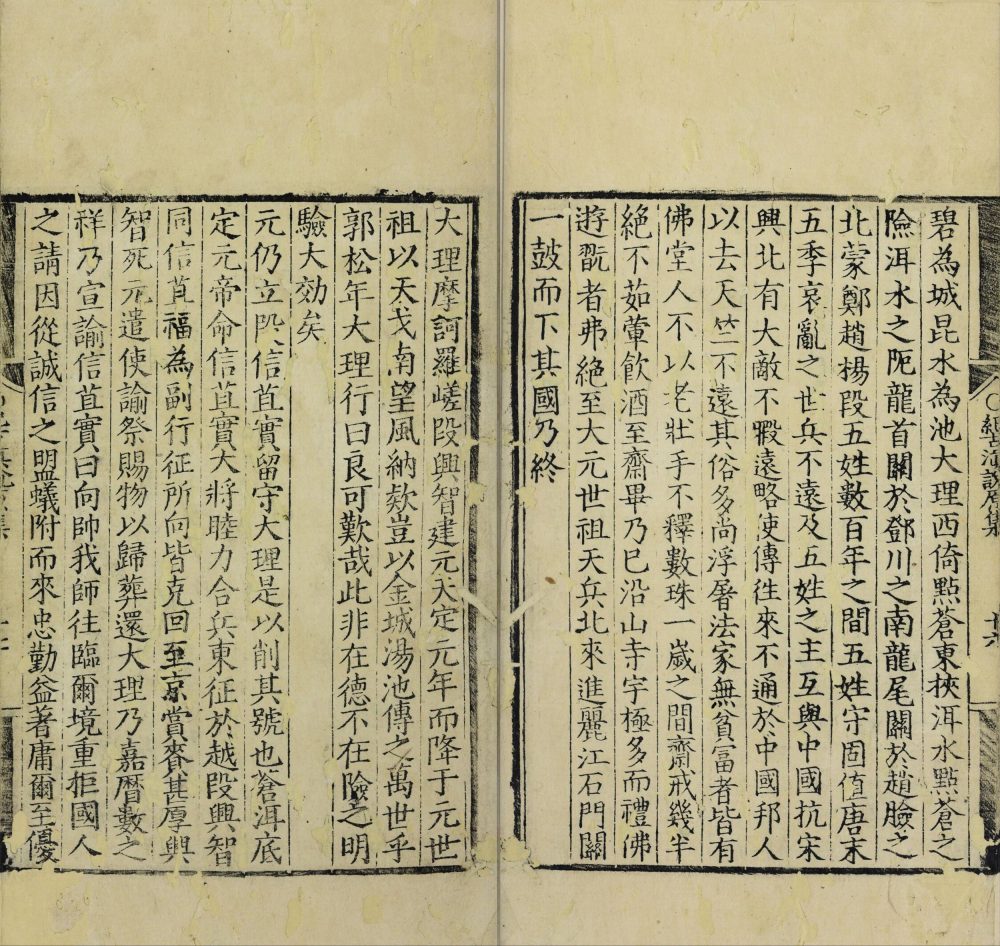 碧為城昆水為池大理西倚點蒼東挾洱水點蒼之
險洱水之阨龍首關於鄧川之南龍尾關於趙瞼之
北蒙鄭趙楊段五姓數百年之間五姓守固值唐末
五季哀亂之世兵不遠及五姓之主互與中國抗宋
興北有大敵不暇遠略使傳往來不通於中國邦人
以去天竺不遠其俗多尚浮屠法家無貧冨者皆有
佛堂人不以老壯手不釋數珠一歲之間齋戒幾半
絕不茹葷飲酒至齋畢乃巳沿山寺宇極多而禮佛
遊翫者弗絕至大元世祖天兵北來進麗江石門關
一鼓而下其國乃終
大理摩訶羅嵯段興智建元天定元年而降于元世
祖以天戈南望風納欵豈以金城湯池傳之萬世乎
郭松年大理行曰良可歎哉此非在德不在險之明
驗大効矣
元仍立段信苴實留守大理是以削其號也蒼洱底
定元帝命信苴實大將睦力合兵東征於越段興智
同信苴福為副行征所向皆克回至京賞賚甚厚興
智死元遣使諭祭賜物以歸葬還大理乃嘉曆數之
祥乃宣諭信苴實曰向帥我師往臨爾境重拒國人
之請因從誠信之盟蟻附而來忠勤益著庸爾至優